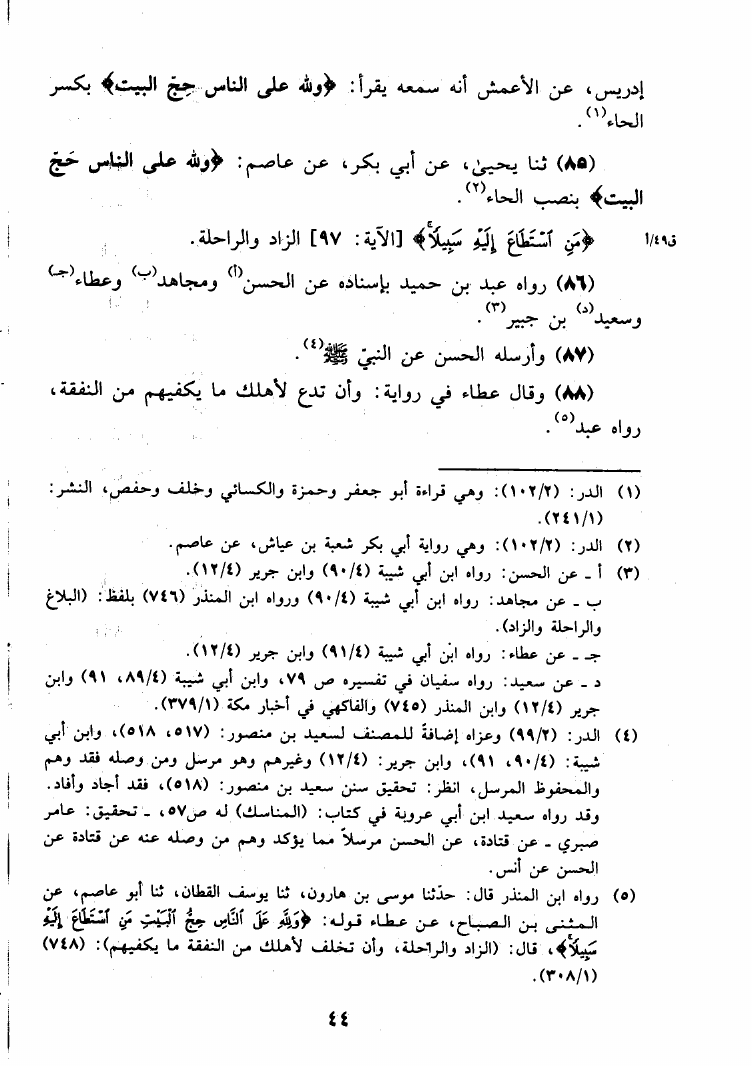 إدريس، عن الأعمش أنه سمعه يقرأ: ﴿ولله على الناس حِجّ البيت﴾ بكسر
الحاء(١).
(٨٥) ثنا يحيىٰ، عن أبي بكر، عن عاصم: ﴿ولله على الناس حَجّ
البيت﴾ بنصب الحاء(٢).
ق٤٩/أ ﴿مَنِ ٱسْتَطَاعَ إِلَيْهِ سَبِيلًا﴾ [الآية: ٩٧] الزاد والراحلة.
(٨٦) رواه عبد بن حميد بإسناده عن الحسن(أ) ومجاهد(ب) وعطاء(جـ)
وسعيد(د) بن جبير(٣).
(٨٧) وأرسله الحسن عن النبيّ ﷺ(٤).
(٨٨) وقال عطاء في رواية: وأن تدع لأهلك ما يكفيهم من النفقة،
رواه عبد(٥).
(١) الدر: (١٠٢/٢): وهي قراءة أبو جعفر وحمزة والكسائي وخلف وحفص، النشر:
(٢٤١/١).
(٢) الدر: (١٠٢/٢): وهي رواية أبي بكر شعبة بن عياش، عن عاصم.
(٣) أ ـ عن الحسن: رواه ابن أبي شيبة (٩٠/٤) وابن جرير (١٢/٤).
ب ـ عن مجاهد: رواه ابن أبي شيبة (٩٠/٤) ورواه ابن المنذر (٧٤٦) بلفظ: (البلاغ
والراحلة والزاد).
جـ ـ عن عطاء: رواه ابن أبي شيبة (٩١/٤) وابن جرير (١٢/٤).
د ـ عن سعيد: رواه سفيان في تفسيره ص ٧٩، وابن أبي شيبة (٨٩/٤، ٩١) وابن
جرير (١٢/٤) وابن المنذر (٧٤٥) والفاكهي في أخبار مكة (٣٧٩/١).
(٤) الدر: (٩٩/٢) وعزاه إضافةً للمصنف لسعيد بن منصور: (٥١٧، ٥١٨)، وابن أبي
شيبة: (٩٠/٤، ٩١)، وابن جرير: (١٢/٤) وغيرهم وهو مرسل ومن وصله فقد وهم
والمحفوظ المرسل، انظر: تحقيق سنن سعيد بن منصور: (٥١٨)، فقد أجاد وأفاد.
وقد رواه سعيد ابن أبي عروبة في كتاب: (المناسك) له ص٥٧، ـ تحقيق: عامر
صبري ـ عن قتادة، عن الحسن مرسلاً مما يؤكد وهم من وصله عنه عن قتادة عن
الحسن عن أنس.
(٥) رواه ابن المنذر قال: حدّثنا موسى بن هارون، ثنا يوسف القطان، ثنا أبو عاصم، عن
المثنى بن الصباح، عن عطاء قوله: ﴿وَلِلَّهِ عَلَى ٱلنَّاسِ حِجُّ ٱلْبَيْتِ مَنِ ٱسْتَطَاعَ إِلَيْهِ
سَبِيلًا﴾، قال: (الزاد والراحلة، وأن تخلف لأهلك من النفقة ما يكفيهم): (٧٤٨)
(٣٠٨/١).
٤٤